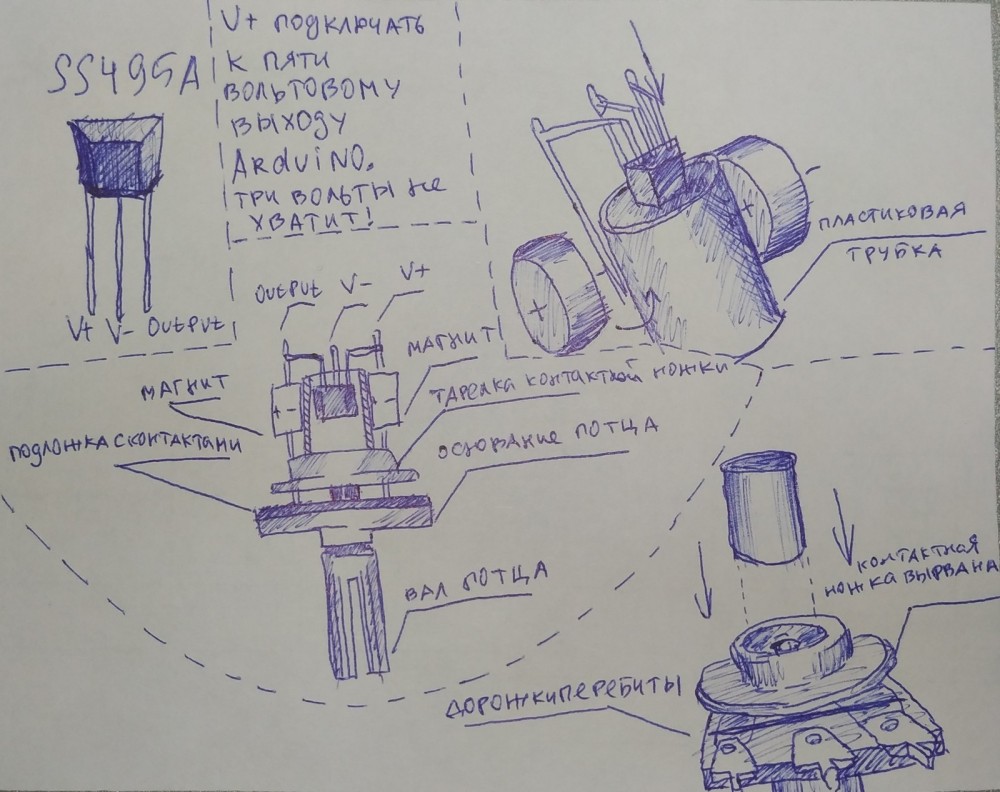 SS495A
V+ V- Output
V+ ПОДКЛЮЧАТЬ
К ПЯТИ
ВОЛЬТОВОМУ
ВЫХОДУ
ArduiNO.
ТРИ ВОЛЬТЫ НЕ
ХВАТИТ!
ПЛАСТИКОВАЯ
ТРУБКА
OUtPUt V- V+
МАГНИТ
МАГНИТ
ТАРЕЛКА КОНТАКТНОЙ НОЖКИ
ПОДЛОЖКА С КОНТАКТАМИ
ОСНОВАНИЕ ПОТЦА
ВАЛ ПОТЦА
КОНТАКТНАЯ
НОЖКА ВЫРВАНА
ДОРОЖКИ ПЕРЕБИТЫ